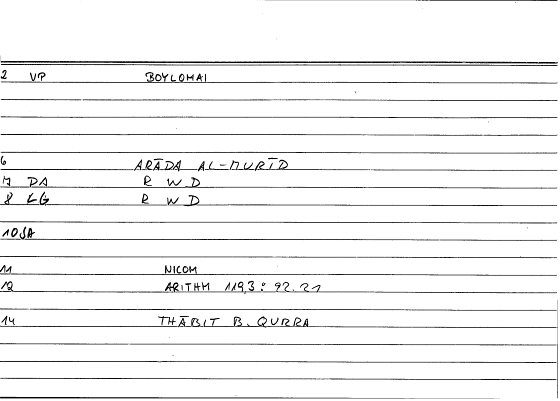 2 VP BOYLOMAI
6 ARĀDA AL-MURĪD
7 DA R W D
8 LG R W D
10 JA
11 NICOM
12 ARITHM 119,3 : 92.21
14 THĀBIT B. QURRA